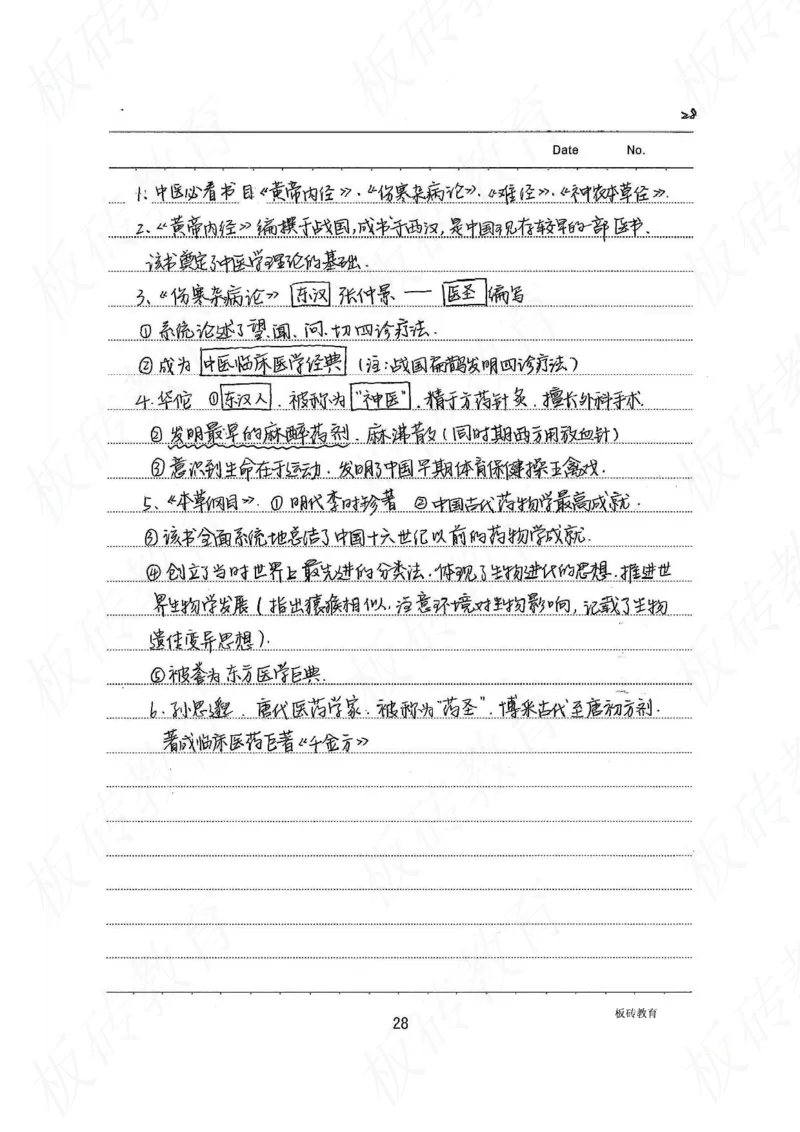 28
Date No.
1、中医必看书目《黄帝内经》、《伤寒杂病论》、《难经》、《神农本草经》.
2、《黄帝内经》编撰于战国,成书于西汉,是中国现存较早的一部医书.
该书奠定了中医学理论的基础.
3、《伤寒杂病论》 东汉 张仲景 — 医圣 编写
① 系统论述了望、闻、问、切四诊疗法.
② 成为 中医临床医学经典 (注:战国扁鹊发明四诊疗法)
4.华佗 ①东汉人、被称为"神医"、精于方药针灸、擅长外科手术.
② 发明最早的麻醉药剂、麻沸散(同时期西方用放血针)
③ 意识到生命在于运动、发明了中国早期体育保健操五禽戏.
5、《本草纲目》. ① 明代李时珍著 ② 中国古代药物学最高成就.
③ 该书全面系统地总结了中国十六世纪以前的药物学成就.
④ 创立了当时世界上最先进的分类法、体现了生物进化的思想、推进世
界生物学发展(指出猿猴相似、注意环境对生物影响,记载了生物
遗传变异思想).
⑤被誉为东方医学巨典.
6、孙思邈、唐代医药学家、被称为"药圣"、博采古代至唐初方剂.
著成临床医药巨著《千金方》
28
板砖教育